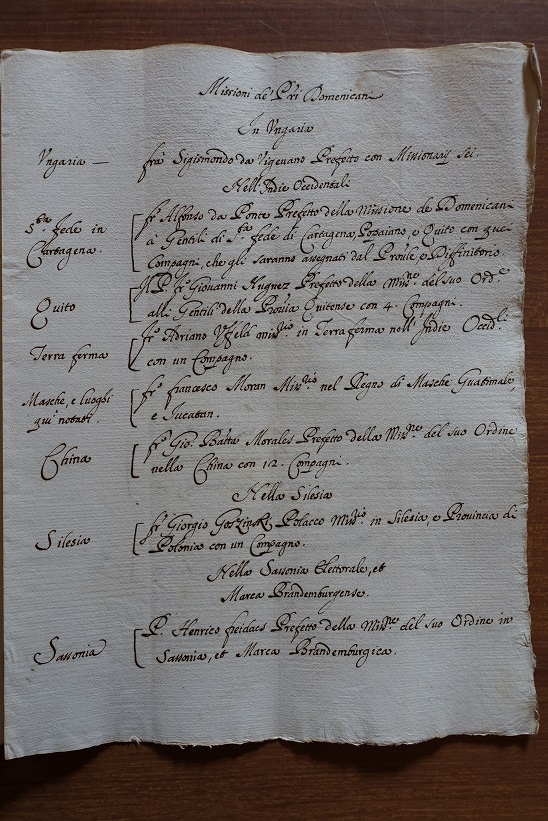 Missioni de' P̃ri Domenicani
In Vngaria
Vngaria — frà Sigismondo da Vigevano Prefetto con Missionarij Sei.
Nell'Indie Occidentali
S.ta Fede in Cartagena.
fr. Alfonso da Ponte Prefetto della Missione de Domenicani
à Gentili di S.ta fede di Cartagena, Popaiano, e Quito con quei
Compagni, che gli saranno assegnati dal Prõule o Diffinitorio
Quito
Il P. fr. Giovanni Huguez Prefetto della Miss.ne del suo Ord.e
alli Gentili della Prouia Quitense con 4. Compagni.
Terra ferma
fr. Adriano miss.rio in Terra ferma nell'Indie Occid.li
con un Compagno.
Masche, e luoghi
qui notati
fr. francesco Moran Miss.rio nel Regno di Masche Guatimala,
e Iucatan.
China
fr. Gio: Batta Morales Prefetto della Miss.ne del suo Ordine
nella China con 12. Compagni.
Nella Silesia
Silesia
fr. Giorgio Goszinski Polacco Miss.rio in Silesia, e Prouincia di
Polonia con un Compagno.
Nella Sassonia Elettorale, et
Marca Brandemburgense.
Sassonia
P. Henrico Prefetto della Miss.ne del suo Ordine in
Sassonia, et Marca Brandemburgica.